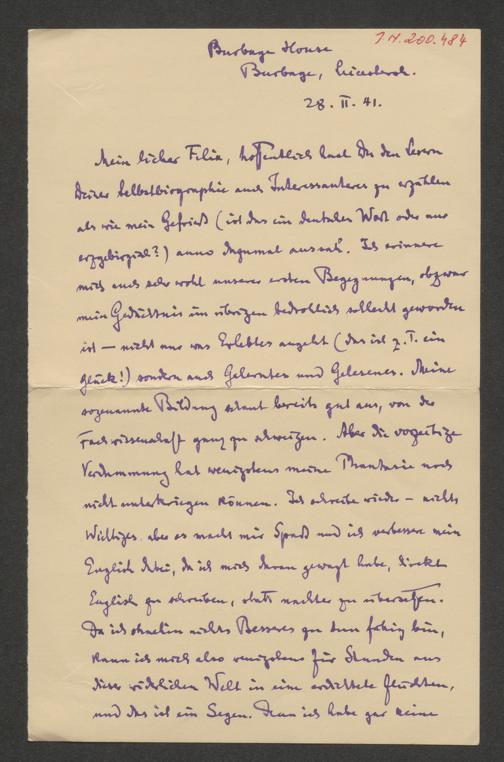 J.N. 200.484
Burbage House
Burbage, Leicestersh.
28. II. 41.
Mein lieber Felix, hoffentlich hast Du den Lesern
Deiner Selbstbiographie auch Interessanteres zu erzählen
als wie mein Gefrieß (ist das ein deutsches Wort oder nur
erzgebirgisch?) anno dazumal aussah. Ich erinnere
mich auch sehr wohl unserer ersten Begegnungen, obzwar
mein Gedächtnis im übrigen bedrohlich schlecht geworden
ist — nicht nur was Erlebtes angeht (das ist z. T. ein
Glück!) sondern auch Gelerntes und Gelesenes. Meine
sogenannte Bildung schaut bereits gut aus, von der
Fachwissenschaft ganz zu schweigen. Aber die vorzeitige
Verdummung hat wenigstens meine Phantasie noch
nicht unterkriegen können. Ich schreibe wieder – nichts
Wichtiges aber es macht mir Spaß und ich verbessere mein
Englisch dabei, da ich mich daran gewagt habe, direkt
Englisch zu schreiben, statt nachher zu übersetzen.
Da ich ohnehin nichts Besseres zu tun fähig bin,
kann ich mich also wenigstens für Stunden aus
dieser wirklichen Welt in eine erdichtete flüchten,
und das ist ein Segen. Denn ich habe gar keine